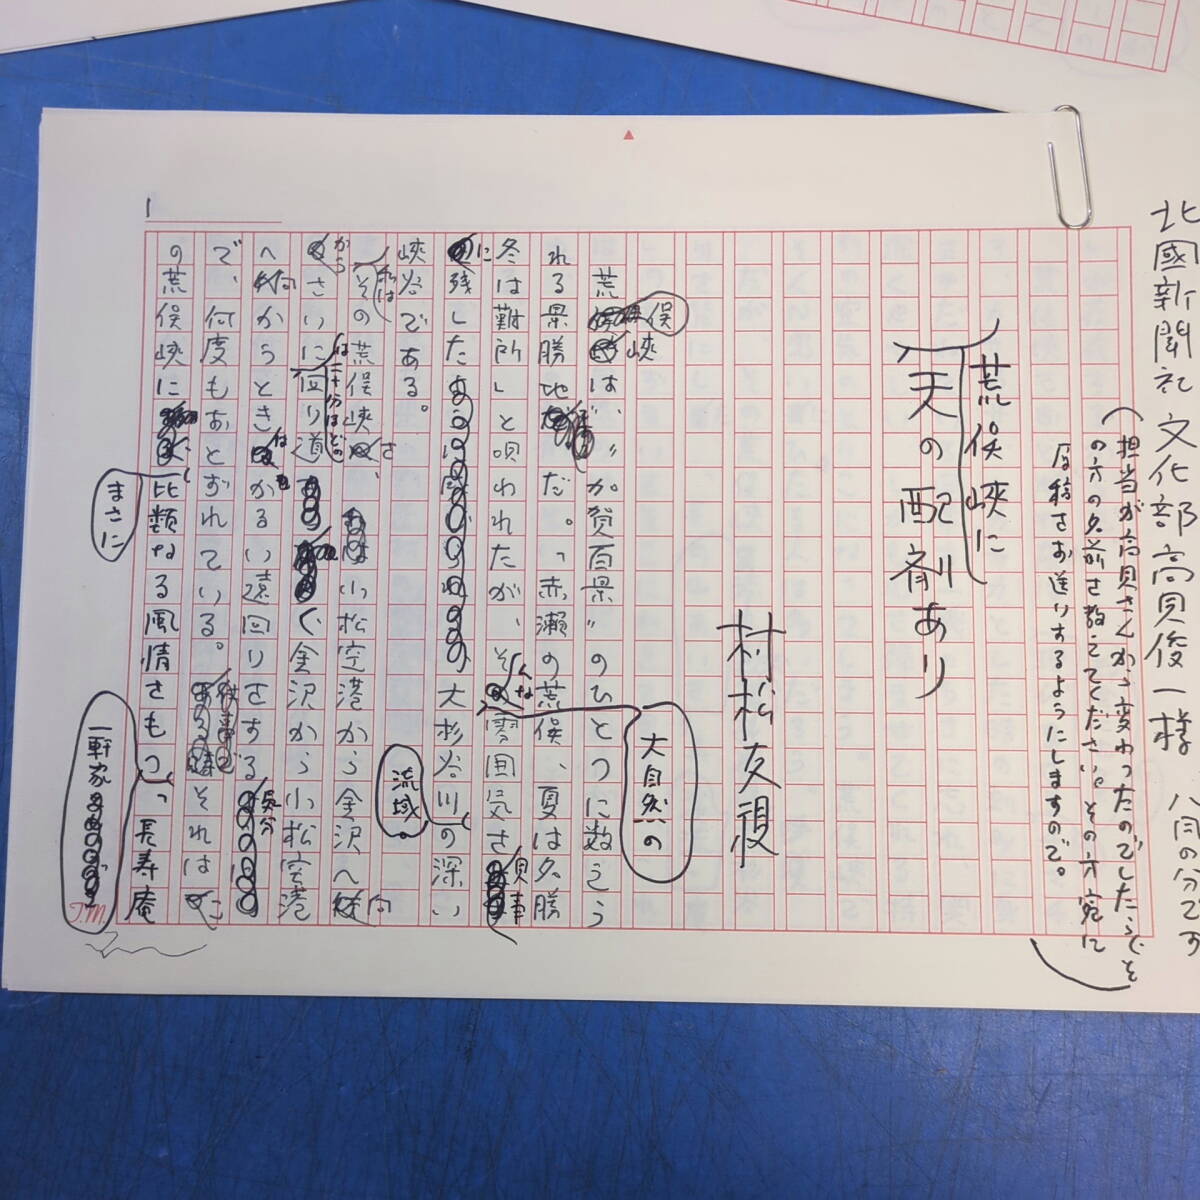 北國新聞社文化部高貝俊一様 八月の分です
(担当が高貝さんから変わったのでしたら、そ
の方の名前を教えてください。その方宛に
原稿をお送りするようにしますので。)
荒俣峡に
天の配剤あり
村松友視
荒俣峡は、〃加賀百景〃のひとつに数えら
大自然の
れる景勝地だ。「赤瀬の荒俣、夏は名勝
冬は難所」と唄われたが、そんな雰囲気を見事
に残した大杉谷川の深い
流域
峡谷である。
私はその荒俣峡へ、小松空港から金沢へ向
からさいに回り道
は二十分ほどの
金沢から小松空港
へ向かうときはかるい遠回りをする気分
で、何度もおとずれている。それに
の荒俣峡に、比類なる風情をもつ、長寿庵
まさに
一軒家
T.M.
1